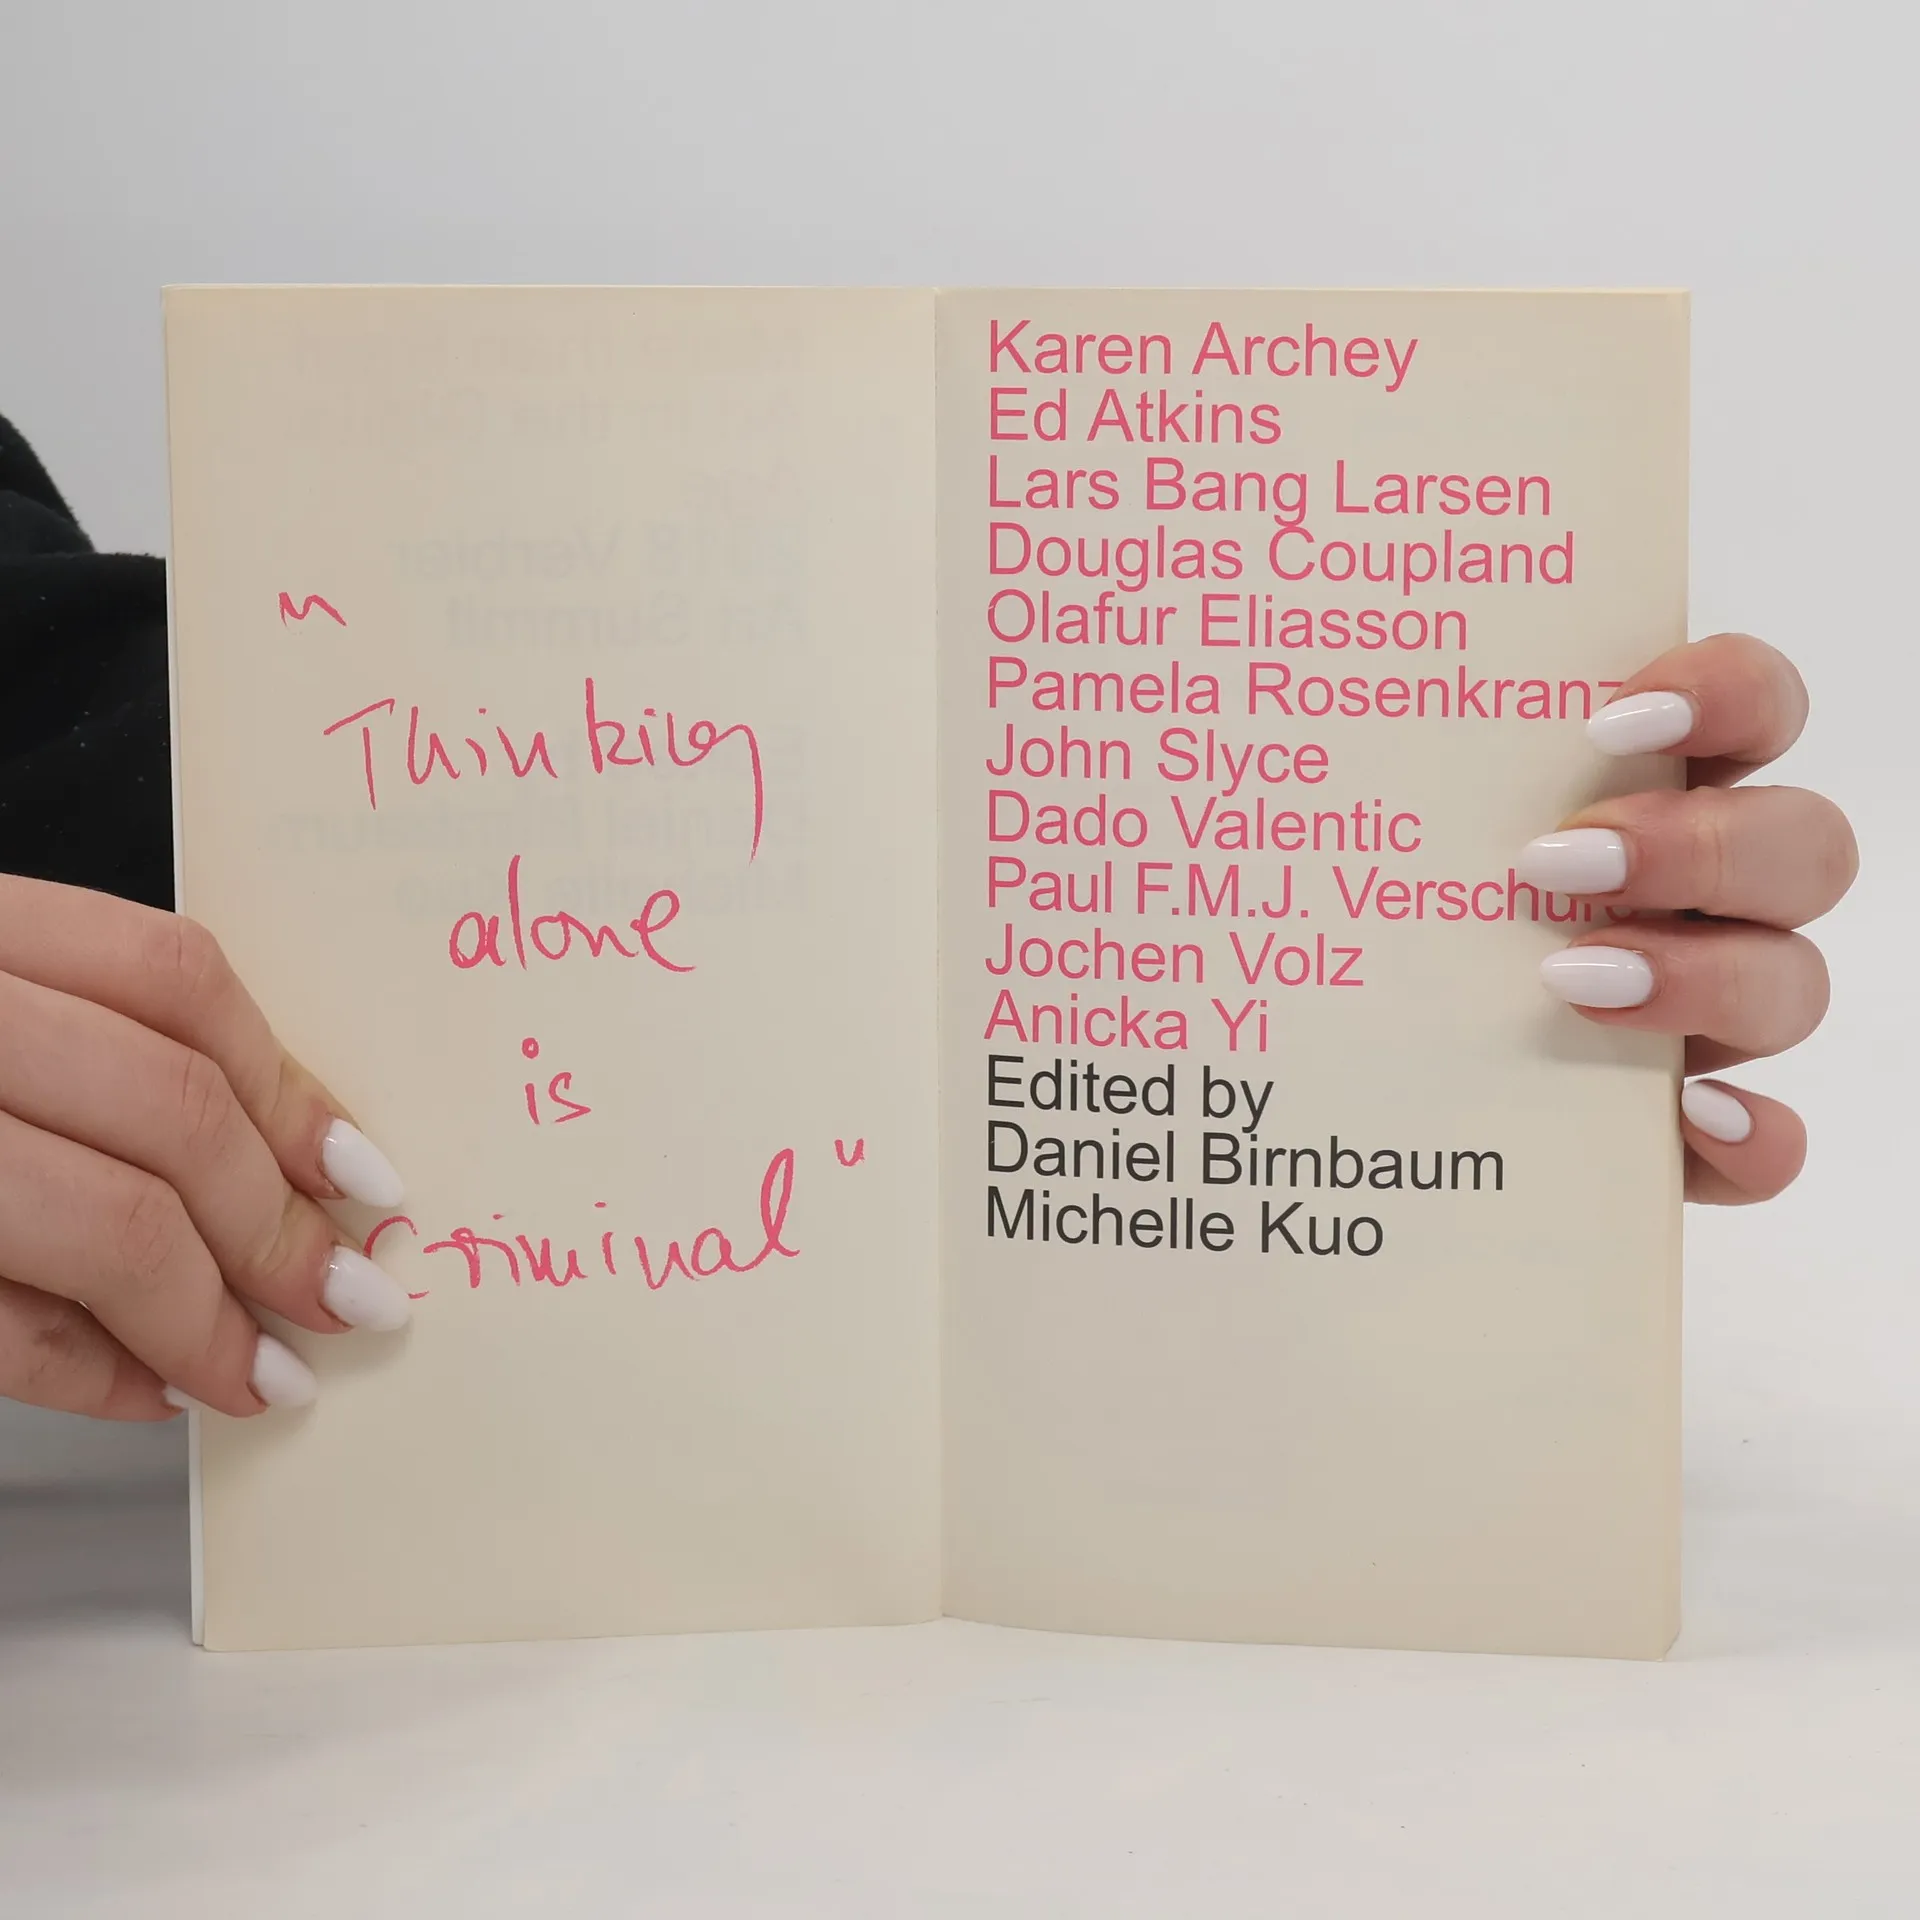 "
Thinking
alone
is
criminal"
Karen Archey
Ed Atkins
Lars Bang Larsen
Douglas Coupland
Olafur Eliasson
Pamela Rosenkranz
John Slyce
Dado Valentic
Paul F.M.J.
Jochen Volz
Anicka Yi
Edited by
Daniel Birnbaum
Michelle Kuo